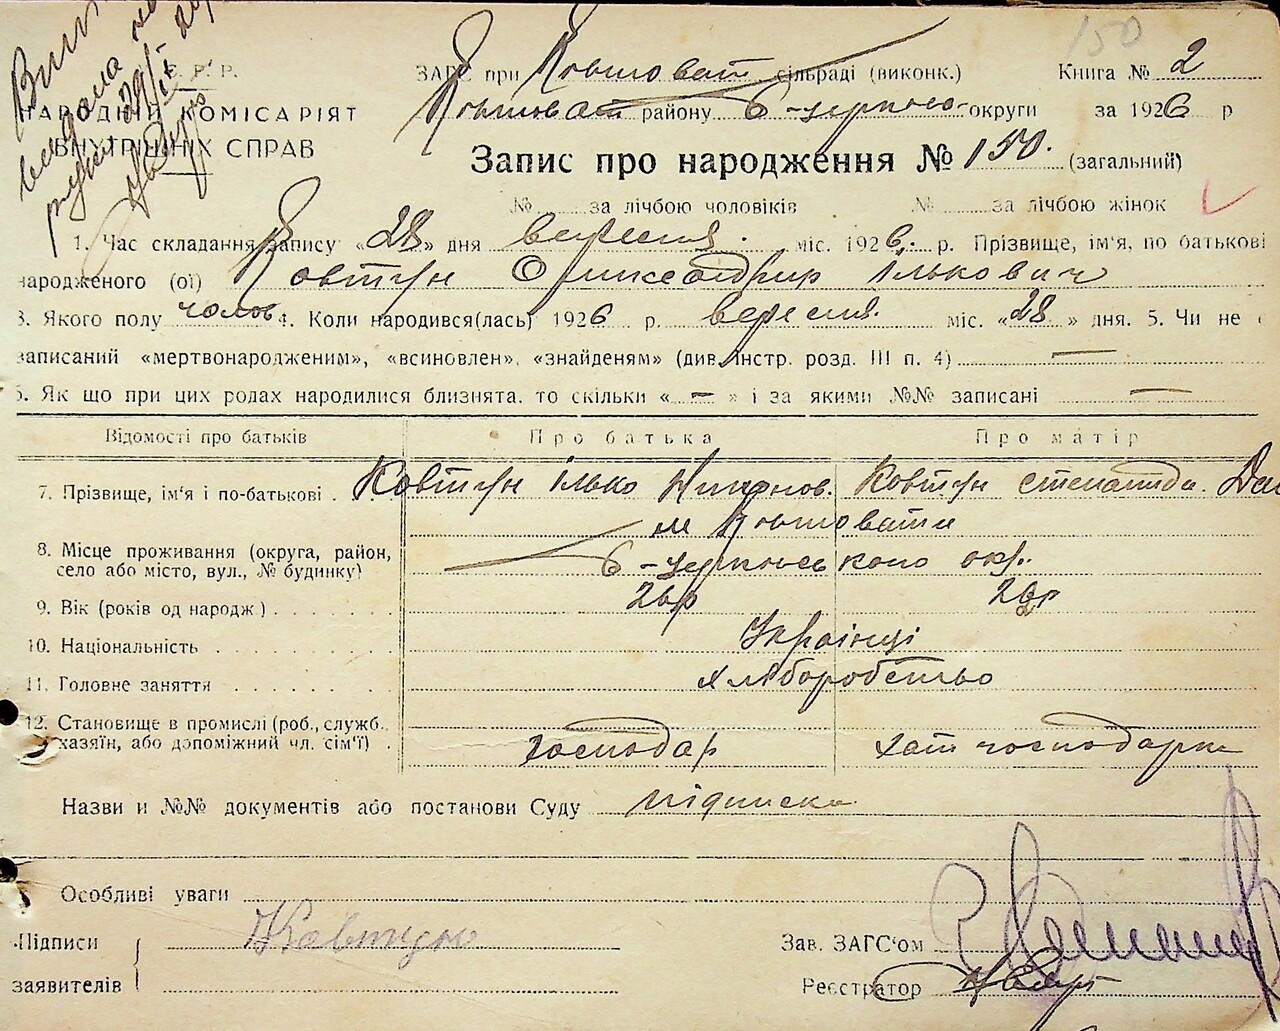 150
С. Р. Р.
НАРОДНІЙ КОМІСАРІЯТ
ВНУТРІШНІХ СПРАВ
ЗАГС при Ковшоват. сільраді (виконк.) Книга № 2
Ковшоват. району Б-церковс. округи за 1926 р
Запис про народження № 150. (загальний)
№ за лічбою чоловіків № за лічбою жінок
1. Час складання запису «28» дня вересня. міс. 1926. р. Прізвище, ім'я, по батькові
народженого (ої) Ковтун Олександир Ількович
3. Якого полу чолов 4. Коли народився(лась) 1926 р. вересня. міс. «28» дня. 5. Чи не є
записаний «мертвонародженим», «всиновлен», «знайденям» (див. інстр. розд. III п. 4) —
6. Як що при цих родах народилися близнята, то скільки « — » і за якими №№ записані —
Відомості про батьків Про батька Про матір
7. Прізвище, ім'я і по-батькові . Ковтун Ілько Никонов. Ковтун Степанида
м Ковшовати
8. Місце проживання (округа, район,
село або місто, вул., № будинку) Б-церковського окр.
9. Вік (років од народж) 26р
10. Національність Українці
11. Головне заняття хліборобство
12. Становище в промислі (роб., служб.
хазяїн, або допоміжний чл. сім'ї) господар хат господарка
Назви и №№ документів або постанови Суду підписка
Особливі уваги
Підписи
заявителів
Ковтун
Зав. ЗАГС'ом
Реєстратор